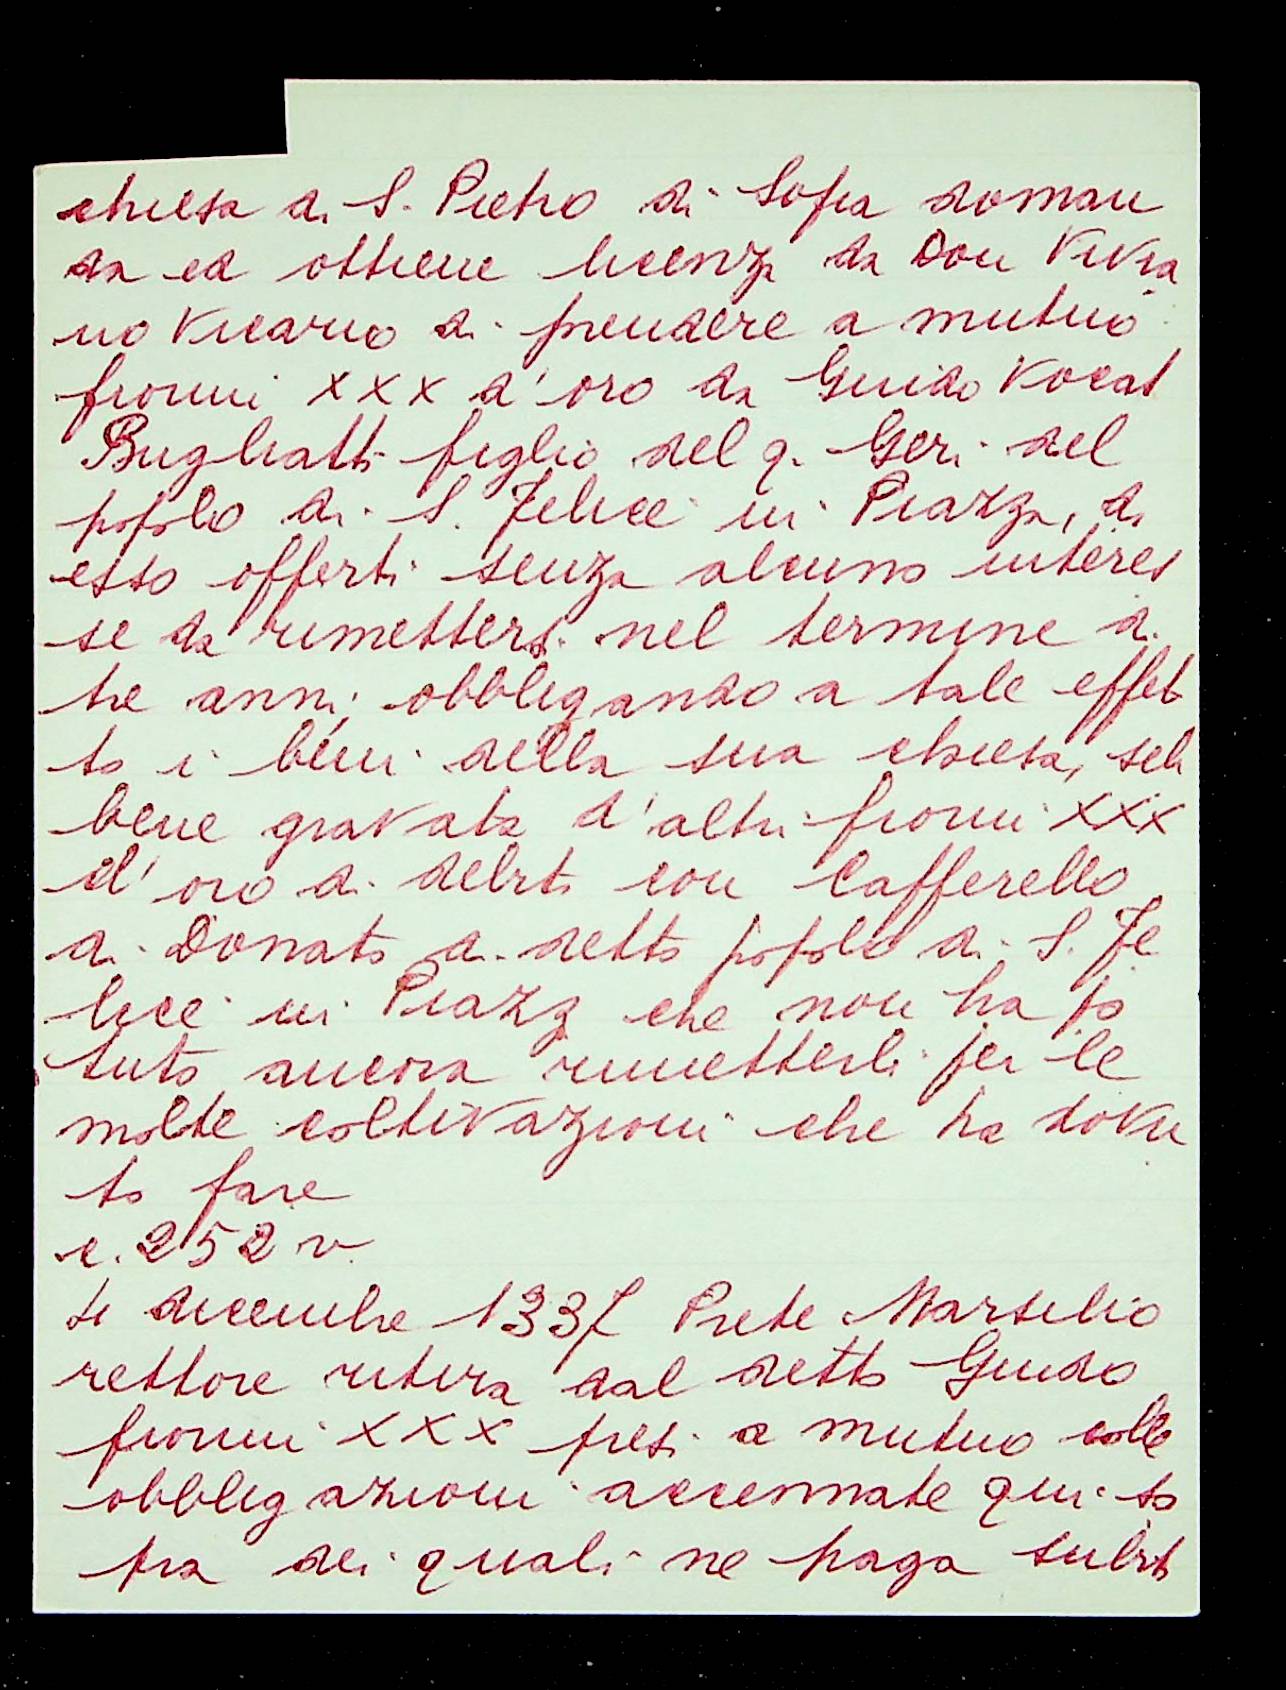 chiesa di S. Pietro di Sofia doman
da ed ottiene licenza da Don Vivia
no Vicario di prendere a mutuo
fiorini XXX d'oro da Guido Vocat
Bugliatti figlio del q. Geri del
popolo di S. Felice in Piazza, di
esso offerti senza alcuno interes
se da rimettersi nel termine di
tre anni, obbligando a tale effet
to i beni della sua chiesa, seb
bene gravata d'altri fiorini XXX
d'oro di debiti con Cafferello
di Donato di detto popolo di S. Fe
lice in Piazza che non ha po
tuto ancora rimetterli per le
molte coltivazioni che ha dovu
to fare
c. 252 v.
4 dicembre 1337 Prete Marsilio
rettore ritira dal detto Guido
fiorini XXX presi a mutuo colle
obbligazioni accennate qui so
pra dei quali ne paga subito